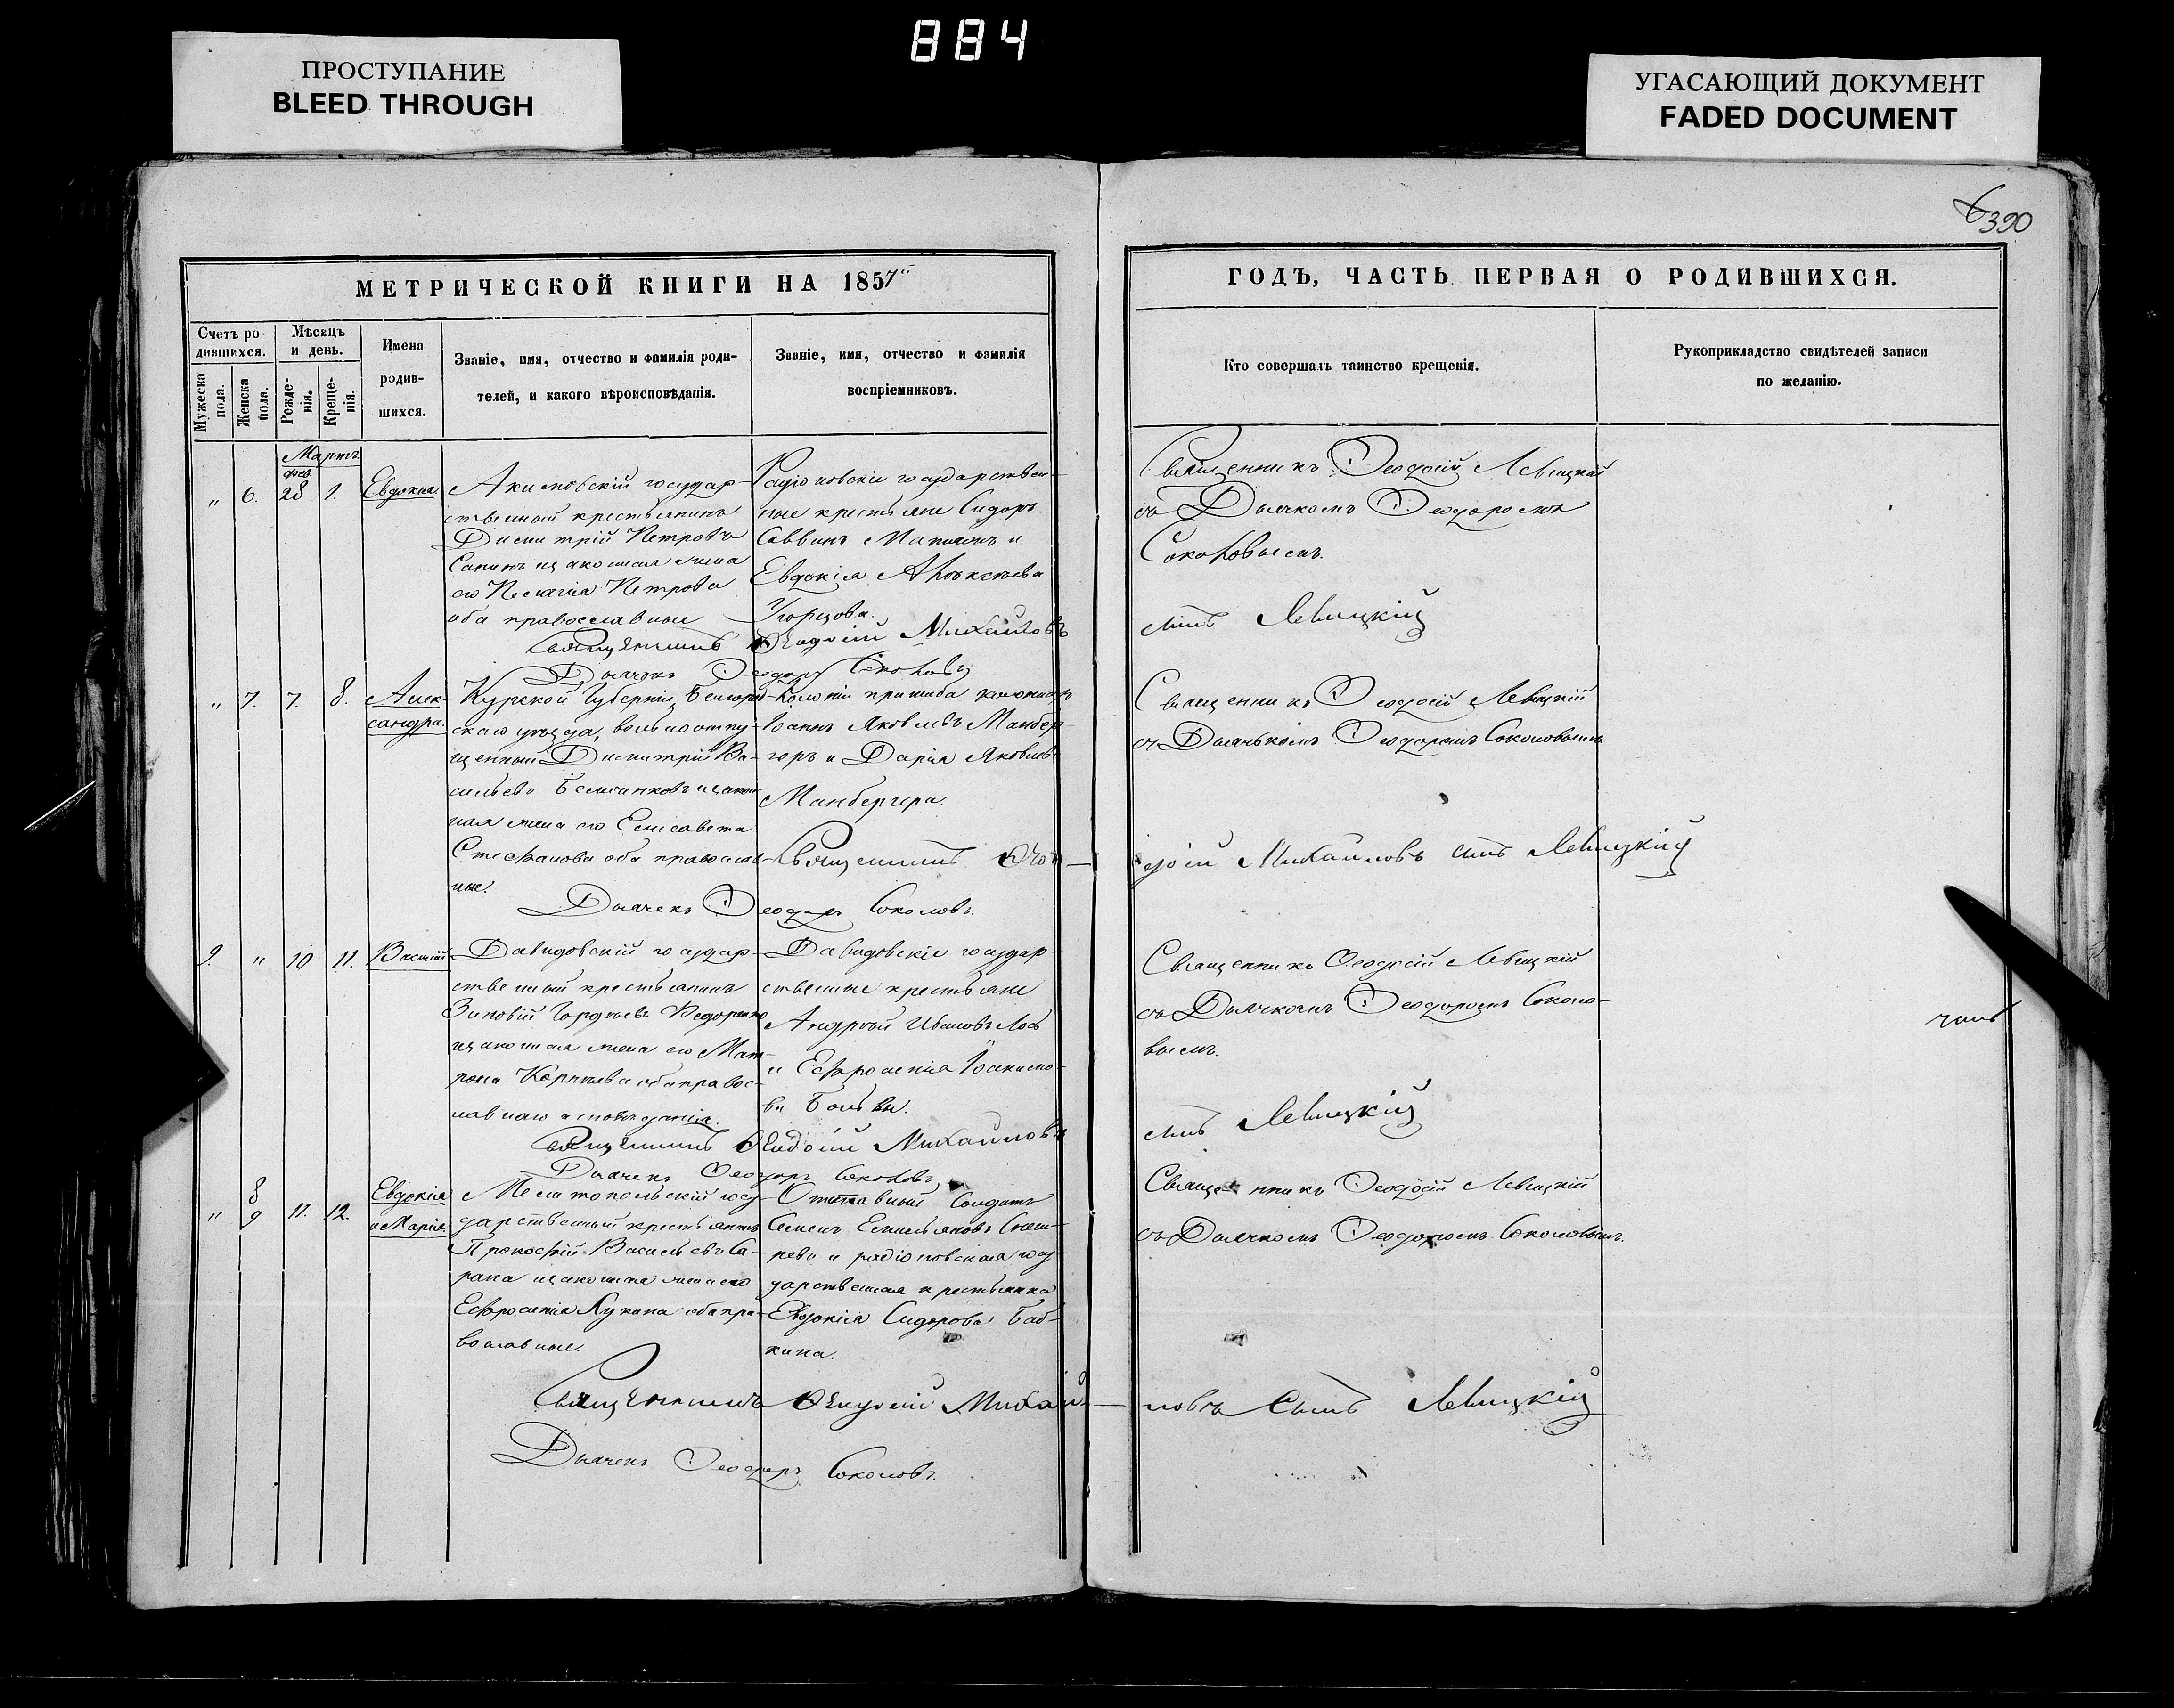 884
ПРОСТУПАНИЕ
BLEED THROUGH
УГАСАЮЩИЙ ДОКУМЕНТ
FADED DOCUMENT
390
МЕТРИЧЕСКОЙ КНИГИ НА 1857
ГОДЪ, ЧАСТЬ ПЕРВАЯ О РОДИВШИХСЯ.
Счетъ ро-
дившихся.
Мужеска пола.
Женска пола.
Мѣсяцъ
и день.
Рожде-
нія.
Креще-
нія.
Имена
родив-
шихся.
Званіе, имя, отчество и фамилія роди-
телей, и какого вѣроисповѣданія.
Званіе, имя, отчество и фамилія
воспріемниковъ.
Кто совершалъ таинство крещенія.
Рукоприкладство свидѣтелей записи
по желанію.
Мартъ
фев.
" 6. 28 1. Евдокія
Акимовскій государ-
ственный крестьянинъ
Димитрій Петровъ
законная жена
его Пелагія Петрова
оба православные
Радіоновскіе государствен-
ные крестьяне Сидоръ
Саввинъ и
Евдокія Алексѣева
Священникъ Ѳеодосій Левицкій
съ Дьячкомъ Ѳеодоромъ
Соколовымъ.
Священникъ Ѳеодосій Михайловъ
сынъ Левицкій
Дьячекъ Ѳеодоръ Соколовъ
" 7. 7. 8. Алек-
сандра.
Курской Губерніи, Бѣлгород-
скаго уѣзда, вольноотпу-
щенный Димитрій Ва-
сильевъ и закон-
ная жена его Елисавета
Стефанова оба православ-
ные.
Колоніи пришиба колонистъ
Іоаннъ Яковлевъ Манбер-
геръ и Дарія Яковлева
Манбергера.
Священникъ Ѳеодосій Левицкій
съ Дьячькомъ Ѳеодоромъ Соколовымъ
Священникъ Ѳео-
досій Михайловъ сынъ Левицкій
Дьячекъ Ѳеодоръ Соколовъ.
9. " 10 11. Василій
Давидовскій государ-
ственный крестьянинъ
Зиновій Гордѣевъ Федоренко
и законная жена его Мат-
рона Корнѣева оба правос-
лавнаго исповѣданія.
Давидовскіе государ-
ственные крестьяне
Андрей Ивановъ
и Ефросинія Іоакимо-
ва
Священникъ Ѳеодосій Левицкій
съ Дьячкомъ Ѳеодоромъ Соколо-
вымъ.
Священникъ Ѳеодосій Михайловъ
сынъ Левицкій
Дьячекъ Ѳеодоръ Соколовъ
" 8 9 11. 12. Евдокія
и Марія
Мелитопольскій госу-
дарственный крестьянинъ
Прокофій Васильевъ Са-
рана и законная жена его
Ефросинія Лукина оба пра-
вославные.
Отставный Солдатъ
Семенъ Емельяновъ
и радіоновская госу-
дарственная крестьянка
Евдокія Сидорова Баб-
кина.
Священникъ Ѳеодосій Левицкій
съ Дьячкомъ Ѳеодоромъ Соколовымъ.
Священникъ Ѳеодосій Михай-
ловъ сынъ Левицкій
Дьячекъ Ѳеодоръ Соколовъ.